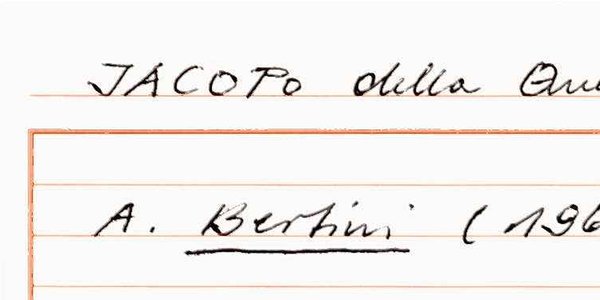 JACOPO della Que
A. Bertini (196